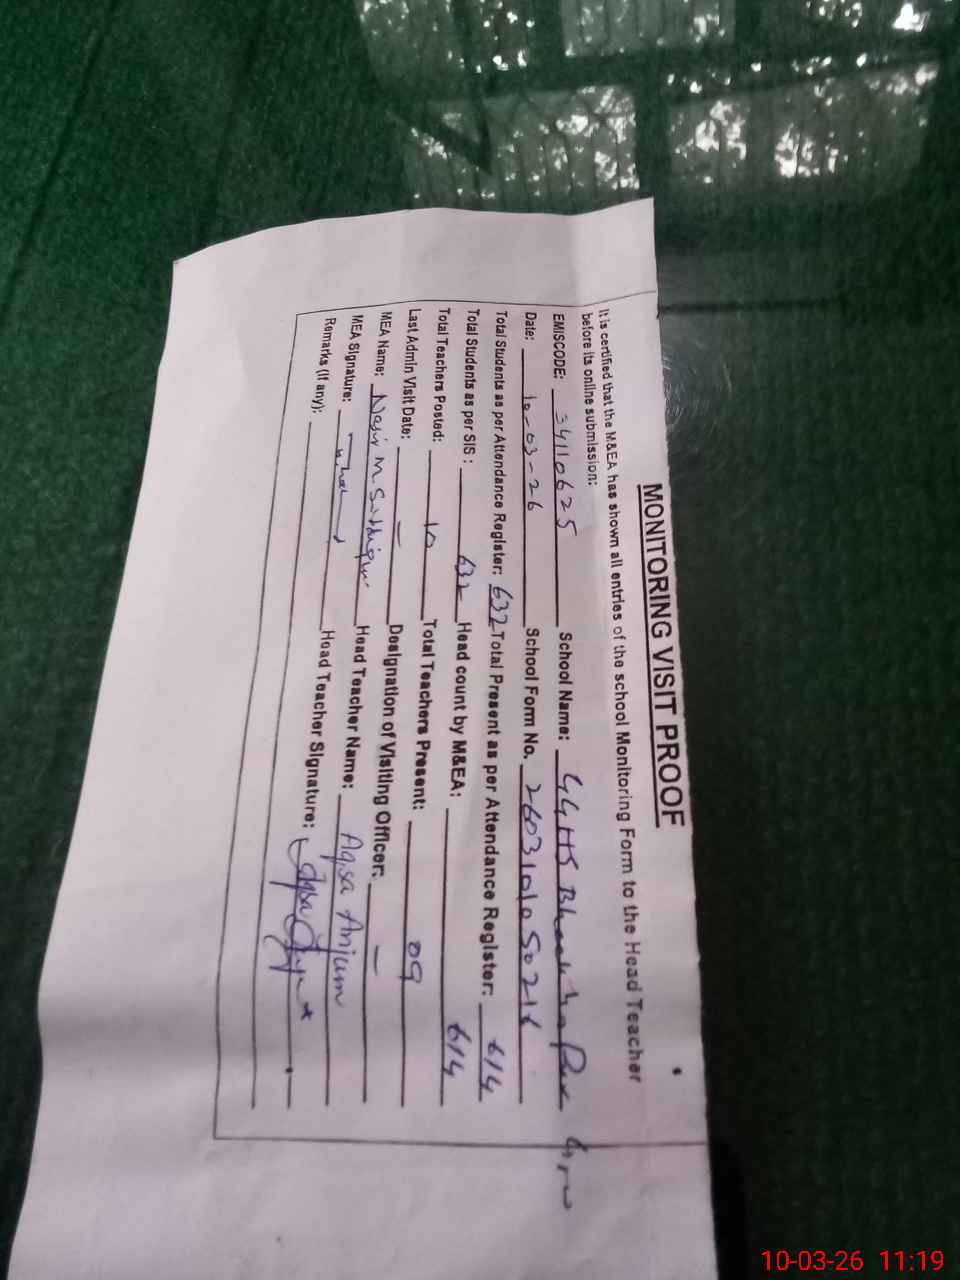 MONITORING VISIT PROOF
It is certified that the M&EA has shown all entries of the school Monitoring Form to the Head Teacher
before its online submission:
EMISCODE: 34110625 School Name: GGHS
Date: 10-03-26 School Form No.
Total Students as per Attendance Register: 632 Total Present as per Attendance Register: 614
Total Students as per SIS: 632 Head count by M&EA: 614
Total Teachers Posted: 10 Total Teachers Present: 09
Last Admin Visit Date: — Designation of Visiting Officer: —
MEA Name: Nasir M Siddiqui Head Teacher Name: Aqsa Anjum
MEA Signature: Head Teacher Signature:
Remarks (if any):
10-03-26 11:19